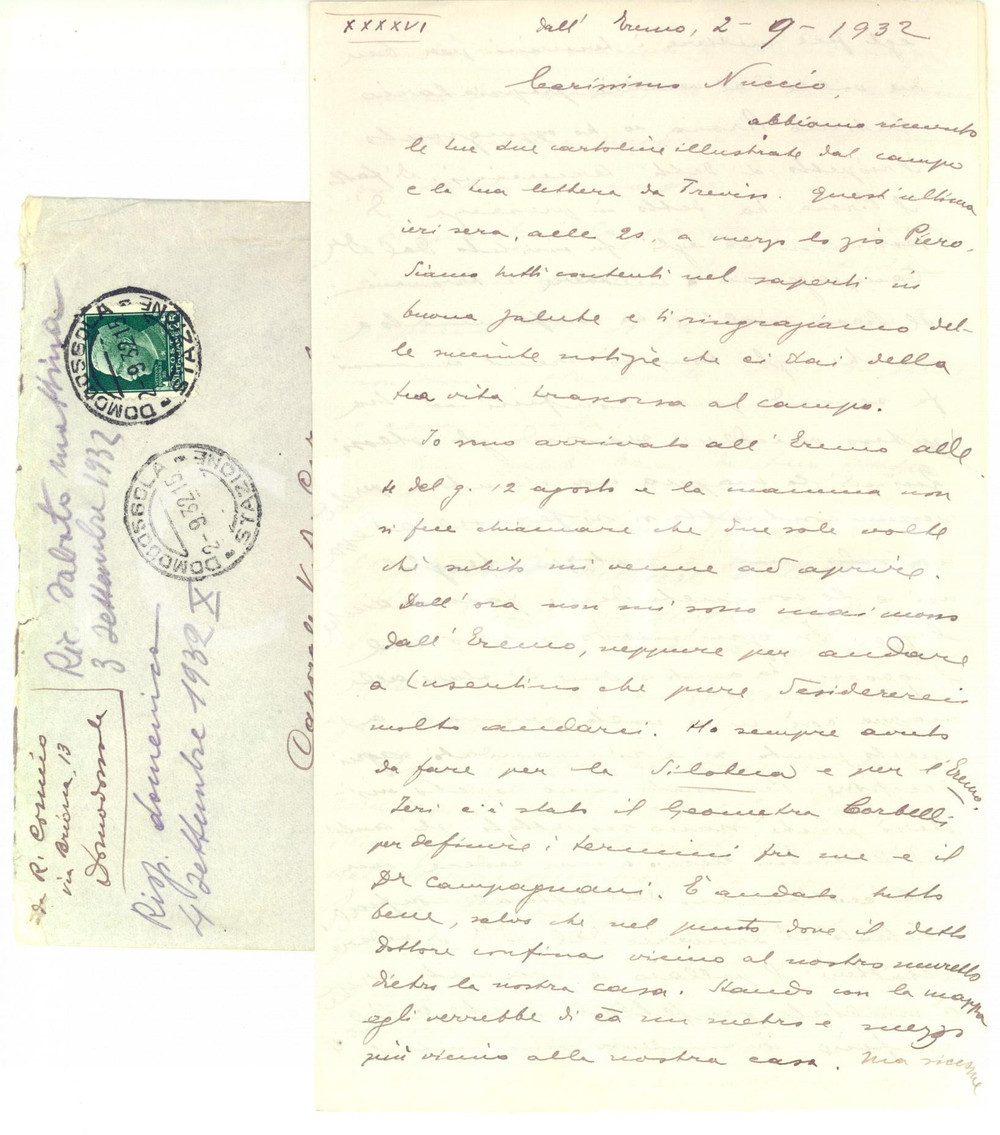 XXXXVI
dall' Eremo, 2-9-1932
Carissimo Nuccio,
abbiamo ricevuto
le tue due cartoline illustrate dal campo
e la tua lettera da Treviso. Quest'ultima
ieri sera, alle 20. a mezzo lo zio Piero.
Siamo tutti contenti nel saperti in
buona salute e ti ringraziamo del-
le notizie che ci dai della
tua vita trascorsa al campo.
Io sono arrivato all' Eremo alle
4 del g. 12 agosto e la mamma non
si fece chiamare che due sole volte
chè subito mi venne ad aprire.
Dall' ora non mi sono mai mosso
dall' Eremo, neppure per andare
a Lusentino che pure desidererei
molto andarci. Ho sempre avuto
da fare per la e per l'Eremo.
Ieri c'è stato il Geometra Corbelli
per definire i termini fra me e il
Dr Campagnani. È andato tutto
bene, salvo che nel punto dove il detto
dottore confina vicino al nostro muretto
dietro la nostra casa. Stando con la mappa
egli verrebbe di ca un metro e mezzo
più vicino alla nostra casa. Ma siccome
DOMODOSSOLA STAZIONE
2-9.32.15
DOMODOSSOLA STAZIONE
2-9.32.15
Ric. sabato mattina
3 settembre 1932
Risp. domenica
4 settembre 1932 X
da R. Cosmio
via Briona, 13
Domodossola
Caporale